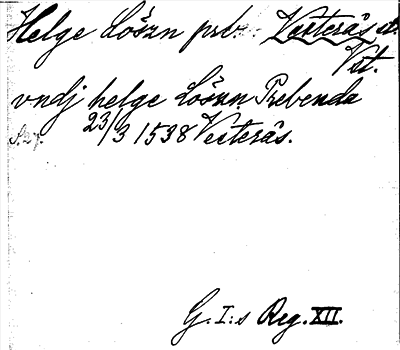 Helge Löszn preb. Vesterås st.
Vst.
vndj helge Löszn Prebenda
S. 27. 23/3 1538 Vesterås.
G. I:s Reg. XII.